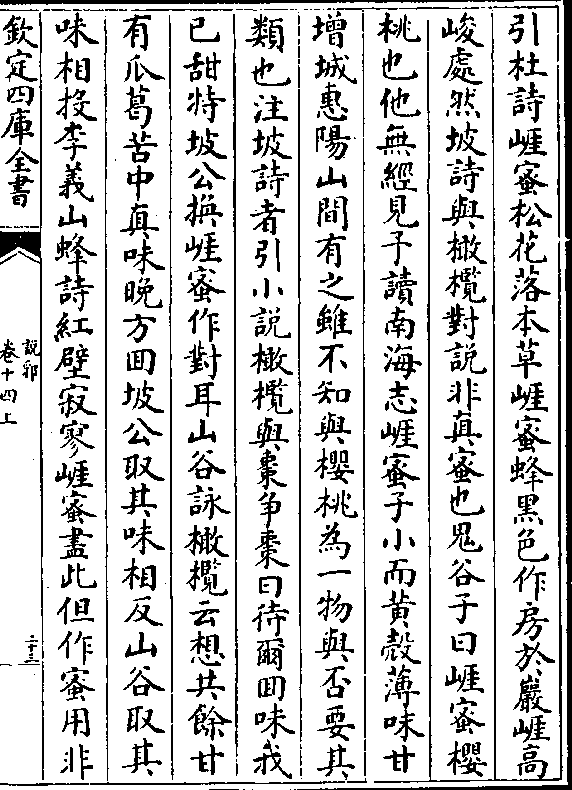 引杜詩崕蜜松花落本草崕蜜蜂黑色作房於巖崕高
峻處然坡詩與橄欖對說非真蜜也鬼谷子曰崕蜜櫻
桃也他無經見予讀南海志崕蜜子小而黄殼薄味甘
增城惠陽山間有之雖不知與櫻桃為一物與否要其
類也注坡詩者引小說橄欖與棗争棗曰待爾回味我
已甜特坡公換崕蜜作對耳山谷詠橄欖云想共餘甘
有瓜葛苦中真味晚方回坡公取其味相反山谷取其
味相投李義山蜂詩紅壁寂寥崕蜜盡此但作蜜用非
欽定四庫全書
說郛
卷十四上
二十三